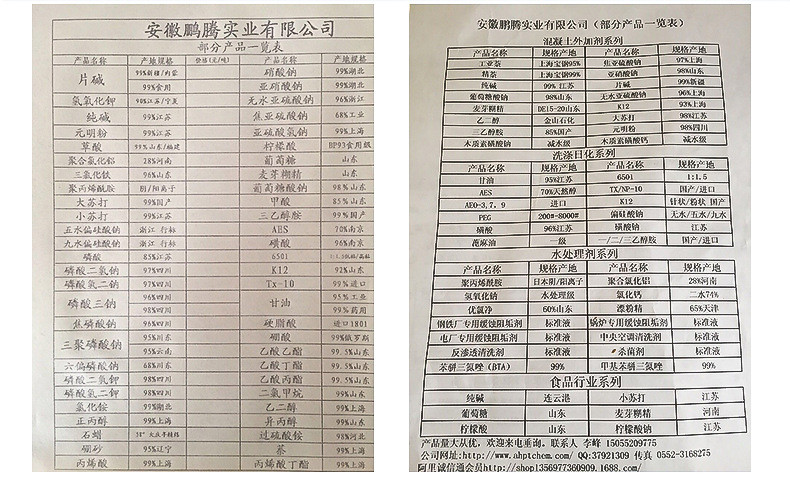 安徽鹏腾实业有限公司
部分产品一览表
产品名称 产地规格 价格(元/吨) 产品名称 产地规格
片碱 99%新疆/内蒙 硝酸钠 99%湖北
99%食用 亚硝酸钠 99%湖北
氢氧化钾 90%江苏/宁夏 无水亚硫酸钠 96%浙江
纯碱 99%江苏 焦亚硫酸钠 68%工业
元明粉 99%江苏 亚硫酸氢钠 99%上海
草酸 99%山东/福建 柠檬酸 BP93食用级
聚合氯化铝 28%河南 葡萄糖 山东
三氯化铁 96%山东 麦芽糊精 山东
聚丙烯酰胺 阴/阳离子 葡萄糖酸钠 98%山东
大苏打 99%江苏 甲酸 85%山东
小苏打 99%江苏 三乙醇胺 99%国产
五水偏硅酸钠 浙江 行标 AES 70%南京
九水偏硅酸钠 浙江 行标 磺酸 96%南京
磷酸 85%江苏 6501
磷酸二氢钠 97%四川 K12 92%山东
磷酸氢二钠 97%四川 Tx-10 99%进口
磷酸三钠 96%四川 甘油 95%工业
98%四川 99%药用
焦磷酸钠 96%四川 硬脂酸 进口1801
三聚磷酸钠 95%四川 硼酸 99%俄罗斯
95%云南 乙酸乙酯 99.5%山东
六偏磷酸钠 68%四川 乙酸丁酯 99.5%山东
磷酸二氢钾 98%四川 乙酸丙酯 99.5%山东
磷酸氢二钾 98%四川 二氯甲烷 99%山东
氯化铵 99%湖北 乙二醇 99%上海
正丙醇 99%上海 异丙醇 99%山东
石蜡 过硫酸铵 98%河北
硼砂 95%辽宁 萘 99%上海
丙烯酸 99%上海 丙烯酸丁酯 99%上海
安徽鹏腾实业有限公司(部分产品一览表)
混凝土外加剂系列
产品名称 规格产地 产品名称 规格产地
工业萘 上海宝钢95% 焦亚硫酸钠 97%上海
精萘 上海宝钢99% 亚硝酸钠 98%山东
纯碱 99% 江苏 片碱 99%新疆
葡萄糖酸钠 98%山东 无水亚硫酸钠 96%上海
麦芽糊精 DE15-20山东 K12 93%上海
乙二醇 金山石化 大苏打 98%江苏
三乙醇胺 85%国产 元明粉 98%四川
木质素磺酸钠 减水级 木质素磺酸钙 减水级
洗涤日化系列
产品名称 规格产地 产品名称 规格产地
甘油 95%江苏 6501 1:1.5
AES 70%天然醇 TX/NP-10 国产/进口
AEO-3,7,9 进口 K12 针状/粉状 国产
PEG 200#-8000# 偏硅酸钠 无水/五水/九水
磺酸 96%江苏 磺酸钠 江苏
蓖麻油 一级 一/二/三乙醇胺 国产/进口
水处理剂系列
产品名称 规格产地 产品名称 规格产地
聚丙烯酰胺 日本阴/阳离子 聚合氯化铝 28%河南
氢氧化钠 水处理级 氯化钙 二水74%
优氯净 60%山东 漂粉精 65%天津
钢铁厂专用缓蚀阻垢剂 标准液 锅炉专用缓蚀阻垢剂 标准液
电厂专用缓蚀阻垢剂 标准液 中央空调清洗剂 标准液
反渗透清洗剂 标准液 杀菌剂 标准液
苯骈三氮唑(BTA) 99% 甲基苯骈三氮唑 99%
食品行业系列
纯碱 连云港 小苏打 江苏
葡萄糖 山东 麦芽糊精 河南
柠檬酸 山东 柠檬酸钠 江苏
产品量大从优,欢迎来电垂询。联系人 李峰 15055209775
公司网址:http://www.ahptchem.com/ QQ:37921309 传真 0552-3168275
阿里诚信通会员http://shop1356977360909.1688.com/